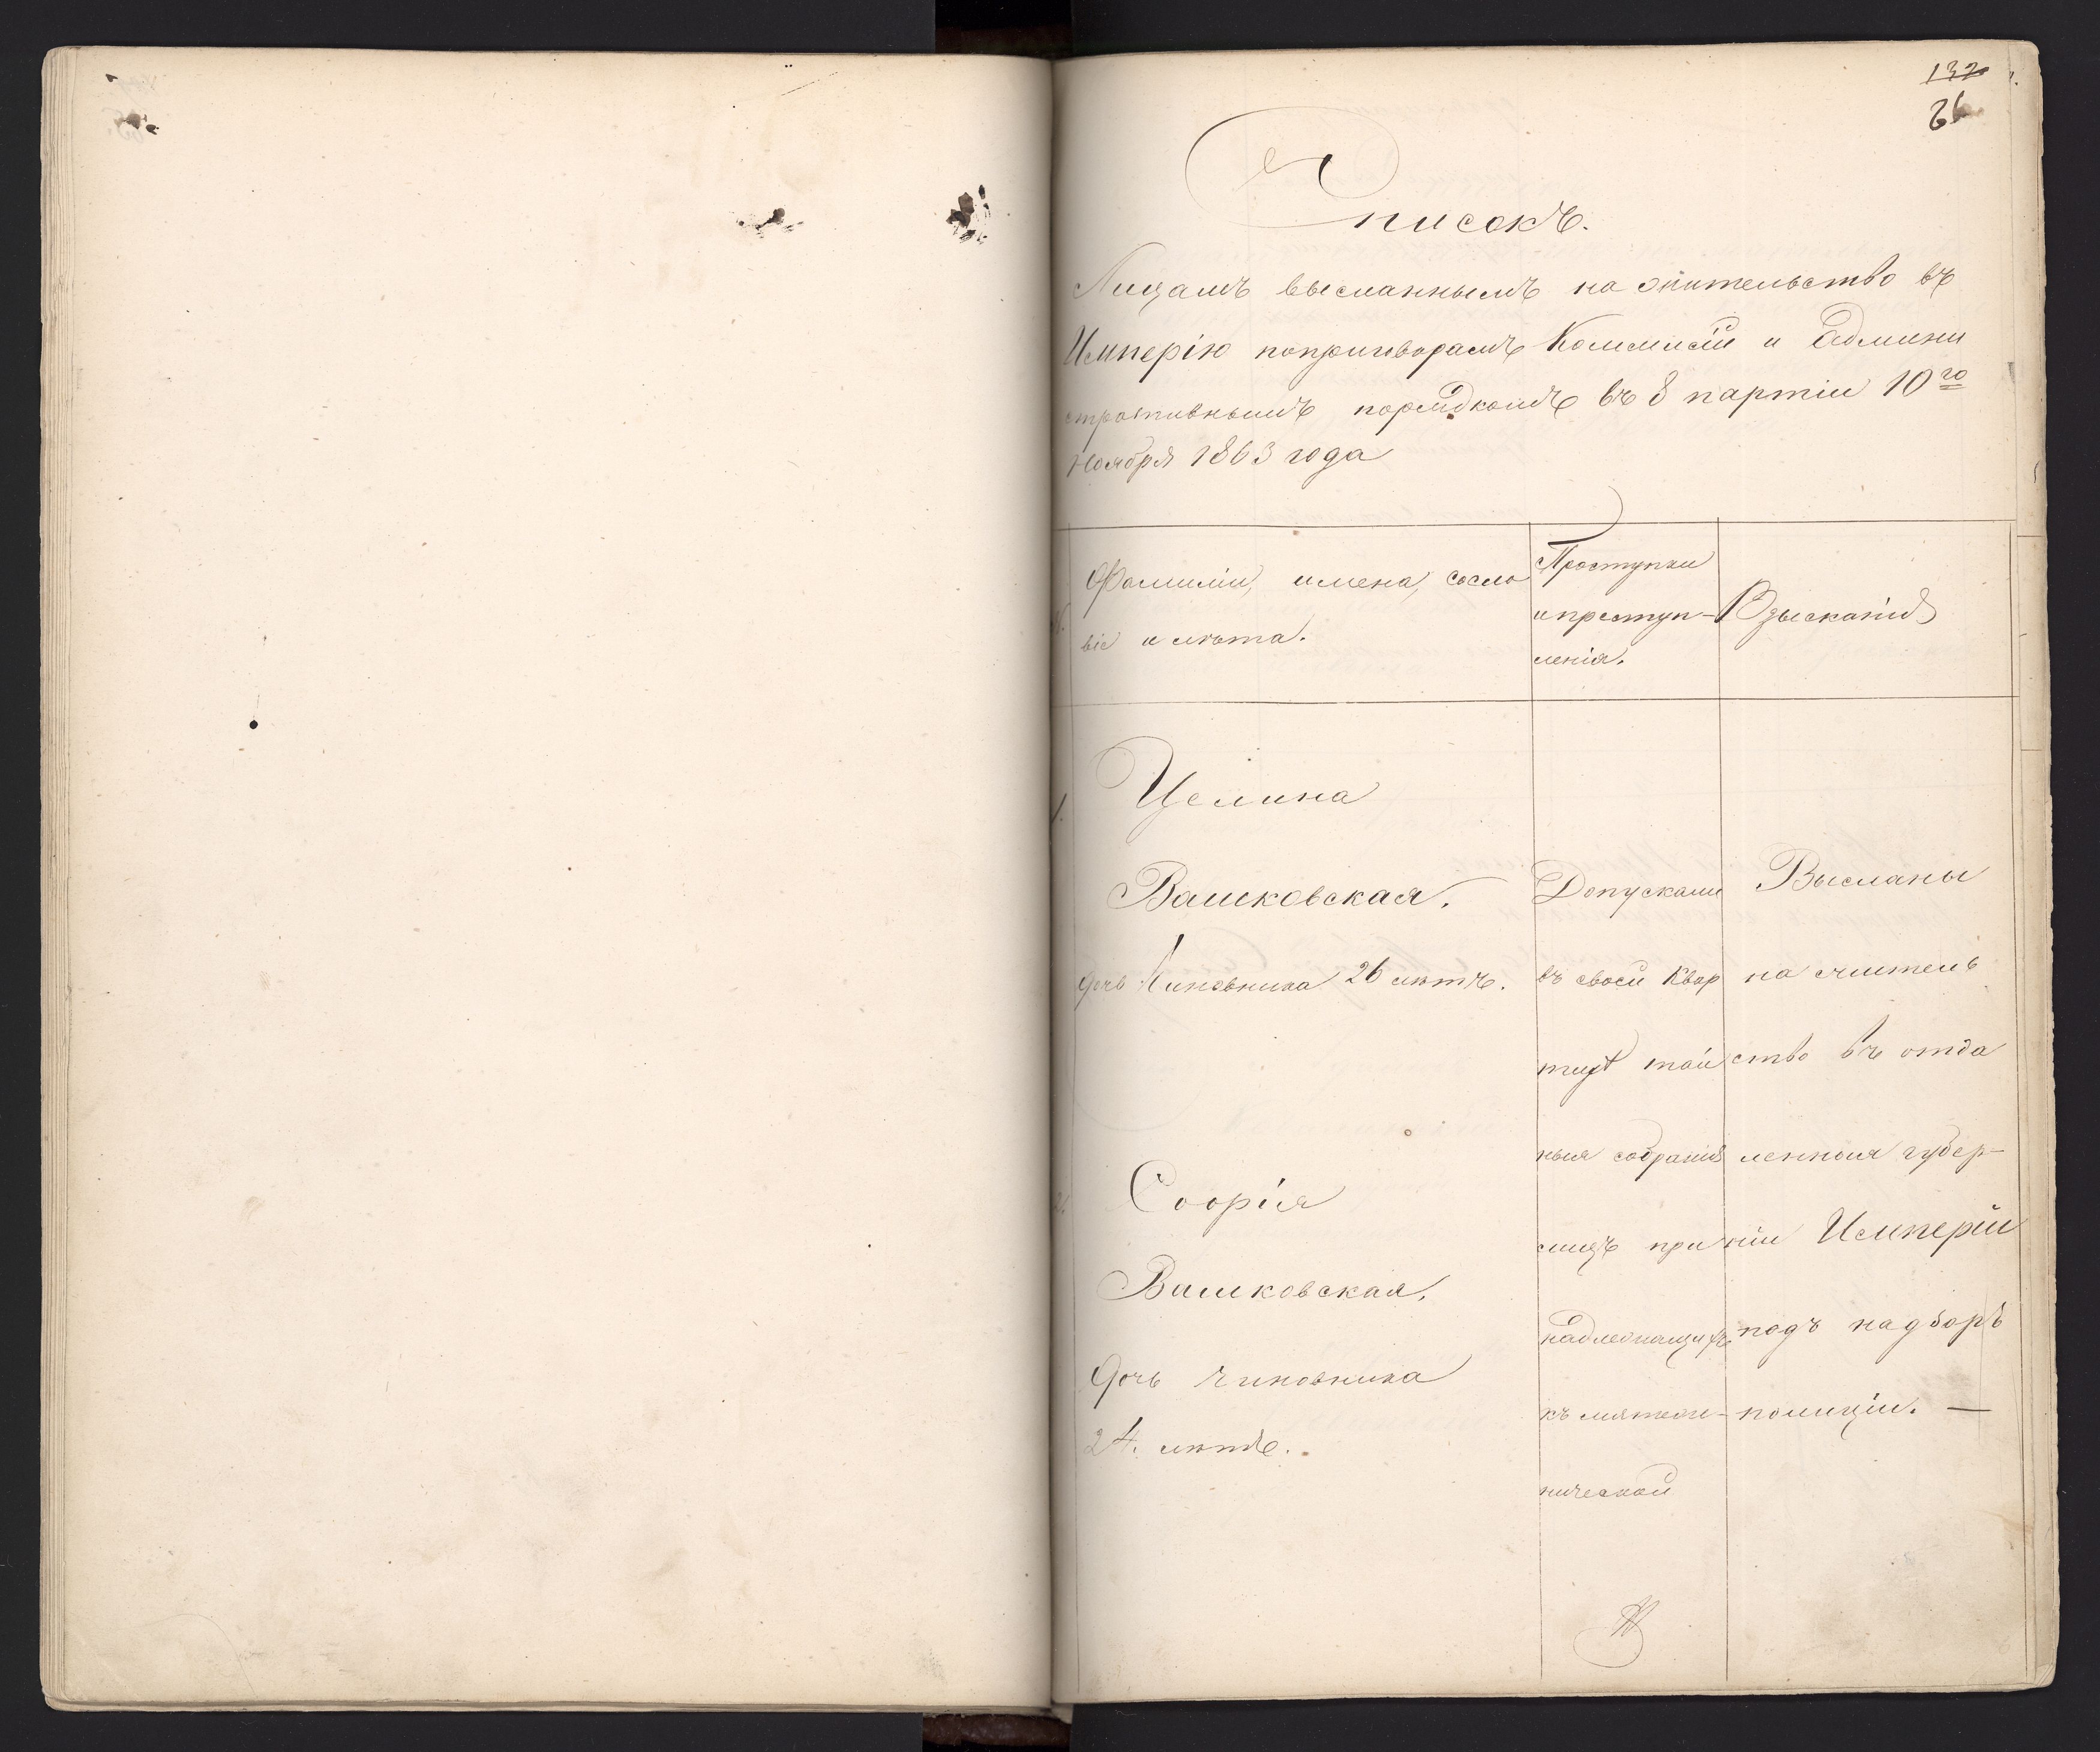 132
26
Списокъ.
Лицамъ высланнымъ на жительство въ
Имперію поприговорамъ Коммисіи и Админи
стративнымъ порядкомъ въ 8 партіи 10го
Ноября 1863 года
№.
Фамиліи, имена, сосло
віе и лѣта.
Проступки
и преступ-
ленія.
Взысканія
1.
Целина
Вашковская.
дочь Чиновника 26 лѣтъ.
2.
Софія
Вашковская.
дочь чиновника
24. лѣтъ.
Допускали
въ своей квар
тирѣ тай
ныя собранія
лицъ при
надлежащихъ
къ мятеж-
нической
Высланы
на житель
ство въ отда
ленныя губер-
ніи Имперіи
подъ надзоръ
полиціи. —